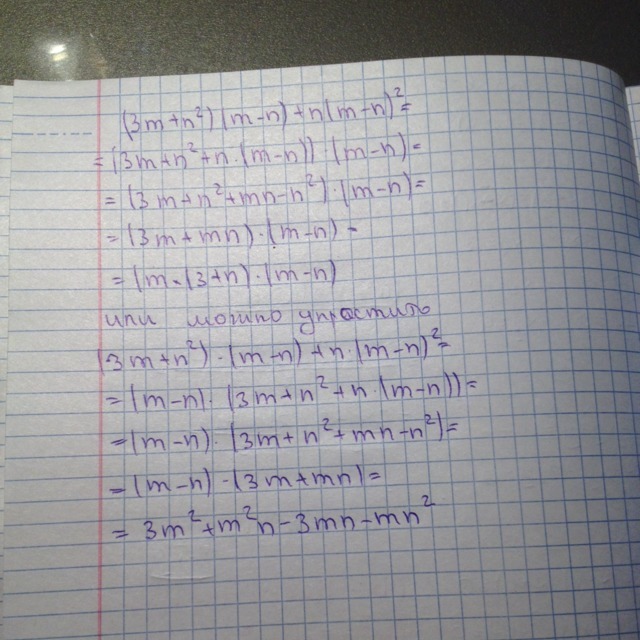 (3m+n²)(m-n)+n(m-n)²=
=(3m+n²+n·(m-n))·(m-n)=
=(3m+n²+mn-n²)·(m-n)=
=(3m+mn)·(m-n)=
=(m·(3+n)·(m-n)
или можно упростить
(3m+n²)·(m-n)+n·(m-n)²=
=(m-n)·(3m+n²+n·(m-n))=
=(m-n)·(3m+n²+mn-n²)=
=(m-n)·(3m+mn)=
=3m²+m²n-3mn-mn²